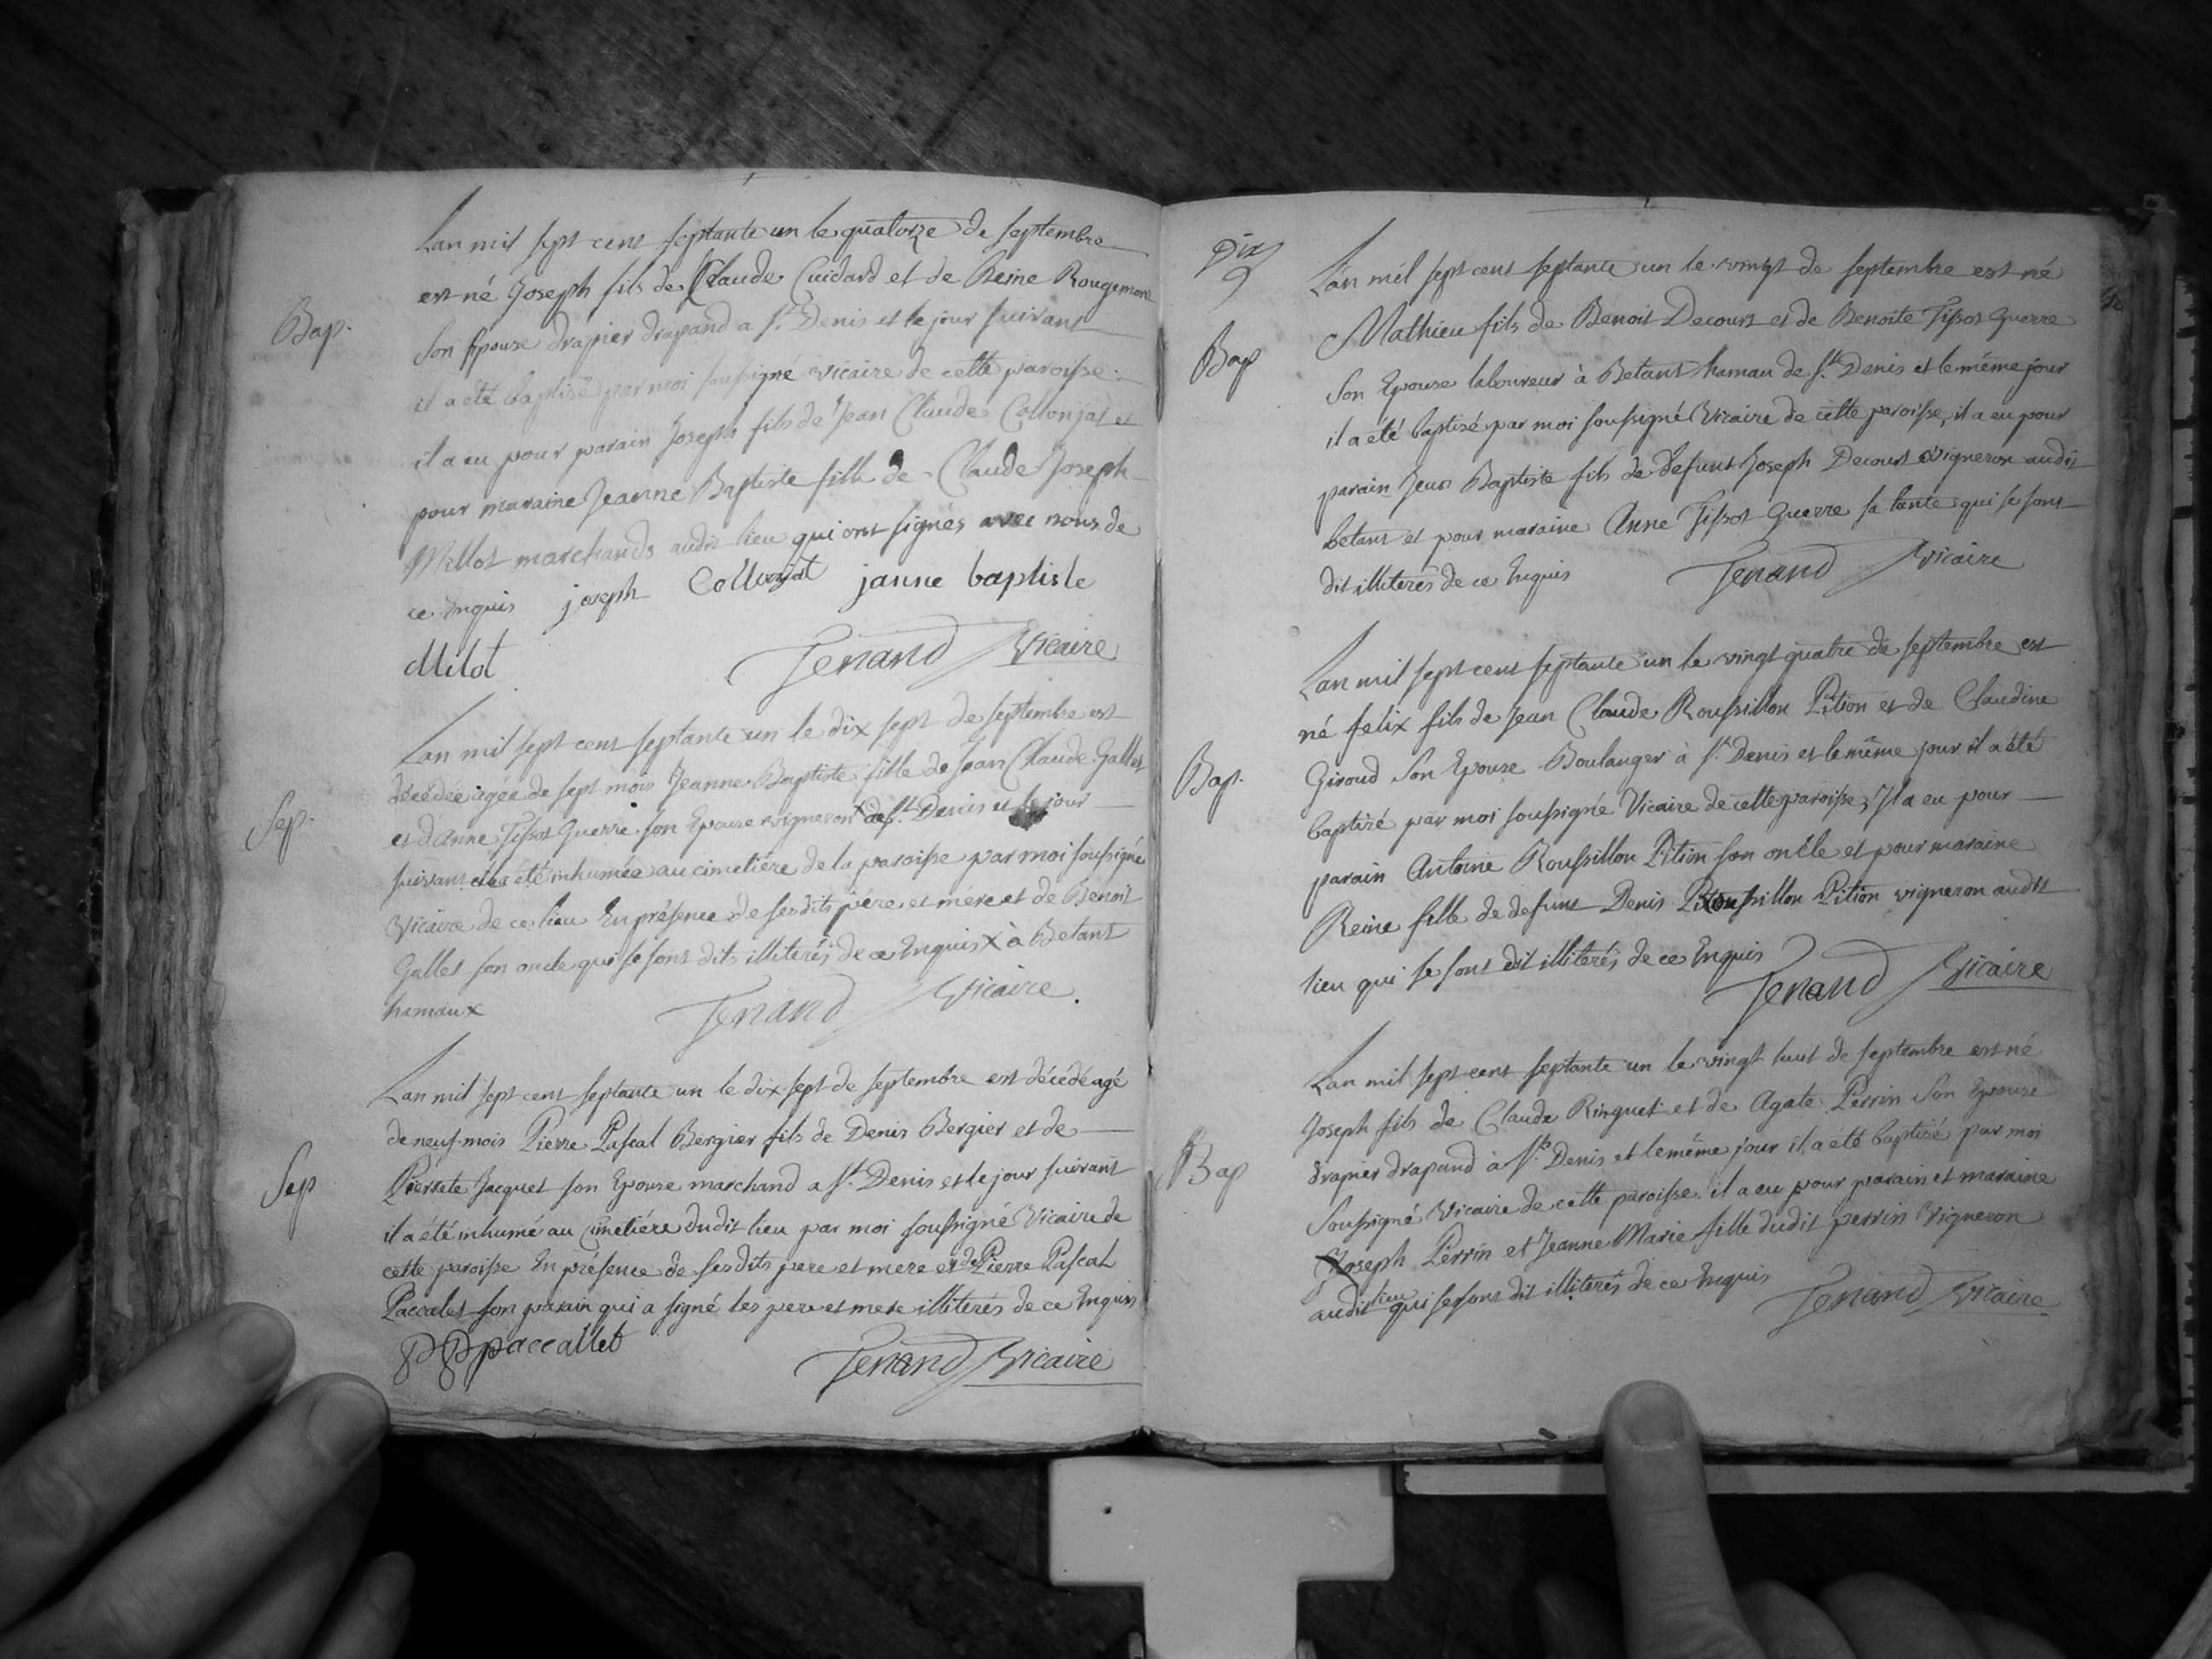 Bap.
Lan mil sept cent septante un le quatorze de septembre
est né Joseph fils de Claude Cuidard et de Reine Rougemont
son Epouse drapier drapand a St. Denis et le jour suivant
il a eté baptisé par moi soussigné vicaire de cette paroisse.
il a eu pour parain Joseph fils de Jean Claude Collonjat et
pour maraine Jeanne Baptiste fille de Claude Joseph
Millot marchands audit lieu qui ont signés avec nous de
ce Enquis joseph Collonjat janne baptiste
Milot Tenand Vicaire
Sep.
Lan mil sept cent septante un le dix sept de septembre est
décédée agée de sept mois Jeanne Baptiste fille de Jean Claude Gallet
et d'anne Tissot Guerre son Epouse vigneron x de St. Denis et le jour
suivant elle a été inhumée au cimetière de la paroisse par moi soussigné
Vicaire de ce lieu En présence de ses dits père et mère et de Benoit
Gallet son oncle qui se sont dits illiterés de ce Enquis x à Betant
hamaux Tenand Vicaire.
Sep
Lan mil sept cent septante un le dix sept de septembre est décédé agé
de neuf mois Pierre Pascal Bergier fils de Denis Bergier et de
Pierrete Jacquet son Epouse marchand a St. Denis et le jour suivant
il a été inhumé au Cimetiére dudit lieu par moi soussigné Vicaire de
cette paroisse En présence de ses dits pere et mere et de Pierre Pascal
Paccalet son parain qui a signé les pere et mere illiterés de ce Enquis
PP paccallet Tenand Vicaire
Dix
Bap
Lan mil sept cent septante un le vingt de septembre est né
Mathieu fils de Benoit Decourt et de Benoite Tissot Guerre
son Epouse laboureur à Betant hamau de St. Denis et le méme jour
il a été baptisé par moi soussigné Vicaire de cette paroisse, il a eu pour
parain Jean Baptiste fils de defunt Joseph Decourt vigneron audit
betant et pour maraine Anne Tissot Guerre sa tante qui se sont
dit illiterés de ce Enquis Tenand Vicaire
Bap.
Lan mil sept cent septante un le vingt quatre de septembre est
né felix fils de Jean Claude Roussillon Pition et de Claudine
Giroud son Epouse Boulanger à St. Denis et le méme jour il a été
baptisé par moi soussigné Vicaire de cette paroisse, Il a eu pour
parain Antoine Roussillon Pition son oncle et pour maraine
Reine fille de defunt Denis Roussillon Pition vigneron audit
lieu qui se sont dit illiterés de ce Enquis
Tenand Vicaire
Bap
Lan mil sept cent septante un le vingt huit de septembre est né
Joseph fils de Claude Ringuet et de Agate Perrin son Epouse
drapier drapand à St. Denis et le méme jour il a été baptisé par moi
soussigné Vicaire de cette paroisse. il a eu pour parain et maraine
Joseph Perrin et Jeanne Marie fille dudit perrin Vigneron
audit lieu qui se sont dit illiterés de ce Enquis Tenand Vicaire